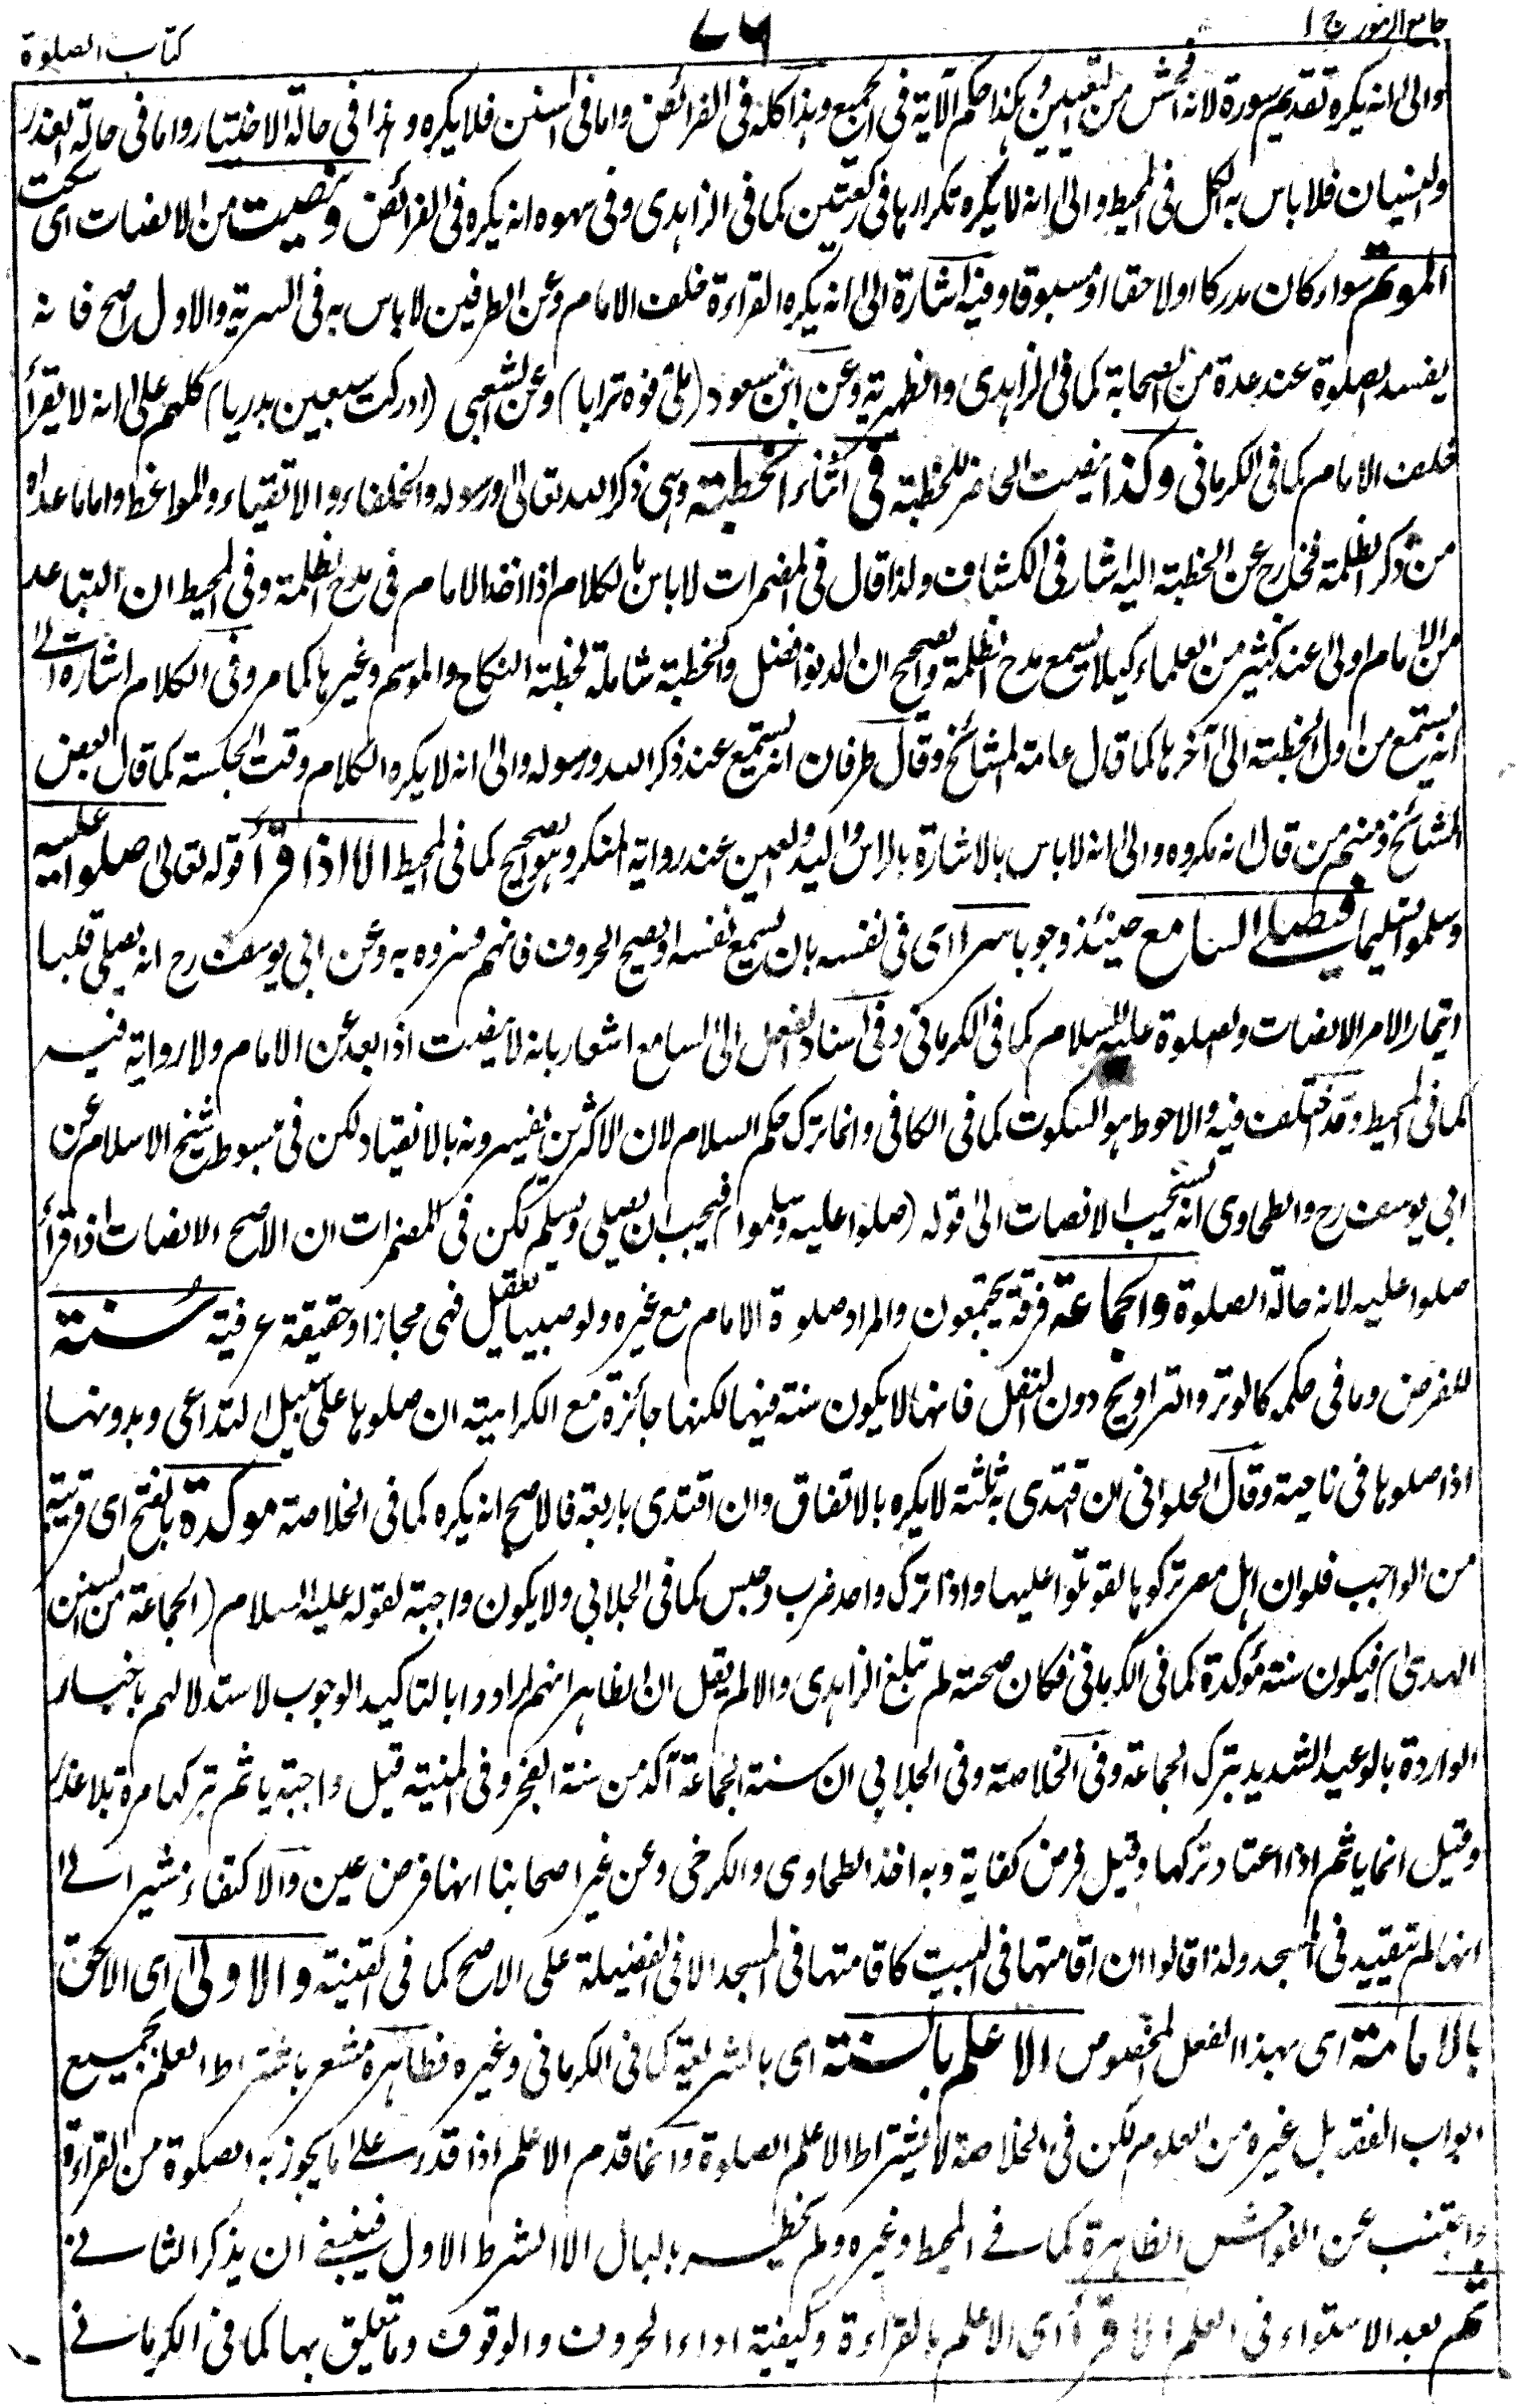 جامع الرموز ج ١
٧٦
كتاب الصلوة
والى انه يكره تقديم سورة لانه افحش من التعيين وهكذا حكم الآية فى الجميع وهذا كله فى الفرائض واما فى السنن فلا يكره وهذا فى حالة الاختيار واما فى حالة العذر
والنسيان فلا باس به الكل فى المحيط والى انه لا يكره تكرارها فى ركعتين كما فى الزاهدى وفى سهوه انه يكره فى الفرائض وينصت من الانصات اى يسكت
الموتم سواء كان مدركا او لاحقا او مسبوقا وفيه اشارة الى انه يكره القراءة خلف الامام وعن الطرفين لا باس به فى السرية والاول اصح فانه
يفسد الصلوة عند عدة من الصحابة كما فى الزاهدى والظهيرية وعن ابن مسعود (ملئ فوه ترابا) وعن الشعبى (ادركت سبعين بدريا) كلهم على انه لا يقرأ
خلف الامام كما فى الكرمانى وكذا ينصت الحاضر للخطبة فى اثناء الخطبة وهى ذكر الله تعالى ورسوله والخلفاء والاتقياء والمواعظ واما ما عداه
من ذكر الظلمة فخارج عن الخطبة اليه اشار فى الكشاف ولذا قال فى المضمرات لا باس بالكلام اذا اخذ الامام فى مدح الظلمة وفى المحيط ان التباعد
من الامام اولى عند كثير من العلماء كيلا يسمع مدح الظلمة والصحيح ان الدنو افضل والخطبة شاملة لخطبة النكاح والموسم وغيرها كما مر وفى الكلام اشارة الى
انه يستمع من اول الخطبة الى آخرها كما قال عامة المشائخ وقال طرفان انه يستمع عند ذكر الله ورسوله والى انه لا يكره الكلام وقت الجلسة كما قال بعض
المشائخ ومنهم من قال انه مكروه والى انه لا باس بالاشارة بالراس واليد والعين عند رواية المنكر وهو الصحيح كما فى المحيط الا اذا قرأ قوله تعالى صلوا عليه
وسلموا تسليما فيصلى السامع حينئذ وجوبا سرا اى فى نفسه بان يسمع نفسه او يصحح الحروف فانهم فسروه به وعن ابى يوسف رح انه يصلى قلبا
ايتمارا لامر الانصات والصلوة عليه السلام كما فى الكرمانى وفى اسناد الفعل الى السامع اشعار بانه لا ينصت اذا بعد عن الامام ولا رواية فيه
كما فى المحيط وقد اختلف فيه والاحوط هو السكوت كما فى الكافى وانما ترك حكم السلام لان الاكثرين يفسرونه بالانقياد لكن فى مبسوط شيخ الاسلام عن
ابى يوسف رح والطحاوى انه يستحب الانصات الى قوله (صلوا عليه وسلموا) فيجب ان يصلى ويسلم لكن فى المضمرات ان الاصح الانصات اذا قرأ
صلوا عليه لانه حالة الصلوة والجماعة فرقة يجتمعون والمراد صلوة الامام مع غيره ولو صبيا يعقل فهى مجاز او حقيقة عرفية سنة
للفرض وما فى حكمه كالوتر والتراويح دون النفل فانها لا يكون سنة فيها لكنها جائزة مع الكراهية ان صلوها على سبيل التداعى وبدونها
اذا صلوها فى ناحية وقال الحلوانى ان اقتدى به ثلثة لا يكره بالاتفاق وان اقتدى باربعة فالاصح انه يكره كما فى الخلاصة موكدة بالفتح اى قريبة
من الواجب فلو ان اهل مصر تركوها لقوتلوا عليها واذا ترك واحد ضرب وحبس كما فى الجلابى ولا يكون واجبة لقوله عليه السلام (الجماعة من سنن
الهدى) فيكون سنة مؤكدة كما فى الكرمانى فكان صحته لم تبلغ الزاهدى والا لم يقل ان الظاهر انهم ارادوا بالتاكيد الوجوب لاستدلالهم باخبار
الواردة بالوعيد الشديد بترك الجماعة وفى الخلاصة وفى الجلابى ان سنة الجماعة آكد من سنة الفجر وفى المنية قيل واجبة ياثم بتركها مرة بلا عذر
وقيل انما ياثم اذا اعتاد تركها وقيل فرض كفاية وبه اخذ الطحاوى والكرخى وعن غير اصحابنا انها فرض عين والاكتفاء مشير الى
انها لم تتقيد فى المسجد ولذا قالوا ان اقامتها فى البيت كاقامتها فى المسجد الا فى الفضيلة على الاصح كما فى القنية والاولى اى الاحق
بالامامة اى بهذا الفعل المخصوص الاعلم بالسنة اى بالشريعة كما فى الكرمانى وغيره فظاهره مشعر باشتراط العلم بجميع
ابواب الفقه بل غيره من العلوم لكن فى الخلاصة لا يشترط الا علم الصلوة وانما قدم الاعلم اذا قدر على ما يجوز به الصلوة من القراءة
واجتنب عن الفواحش الظاهرة كما فى المحيط وغيره ولم يخطر بالبال الا الشرط الاول فينبغى ان يذكر الثانى
ثم بعد الاستواء فى العلم الاقرأ اى الاعلم بالقراءة وكيفية اداء الحروف والوقوف وما يتعلق بها كما فى الكرمانى